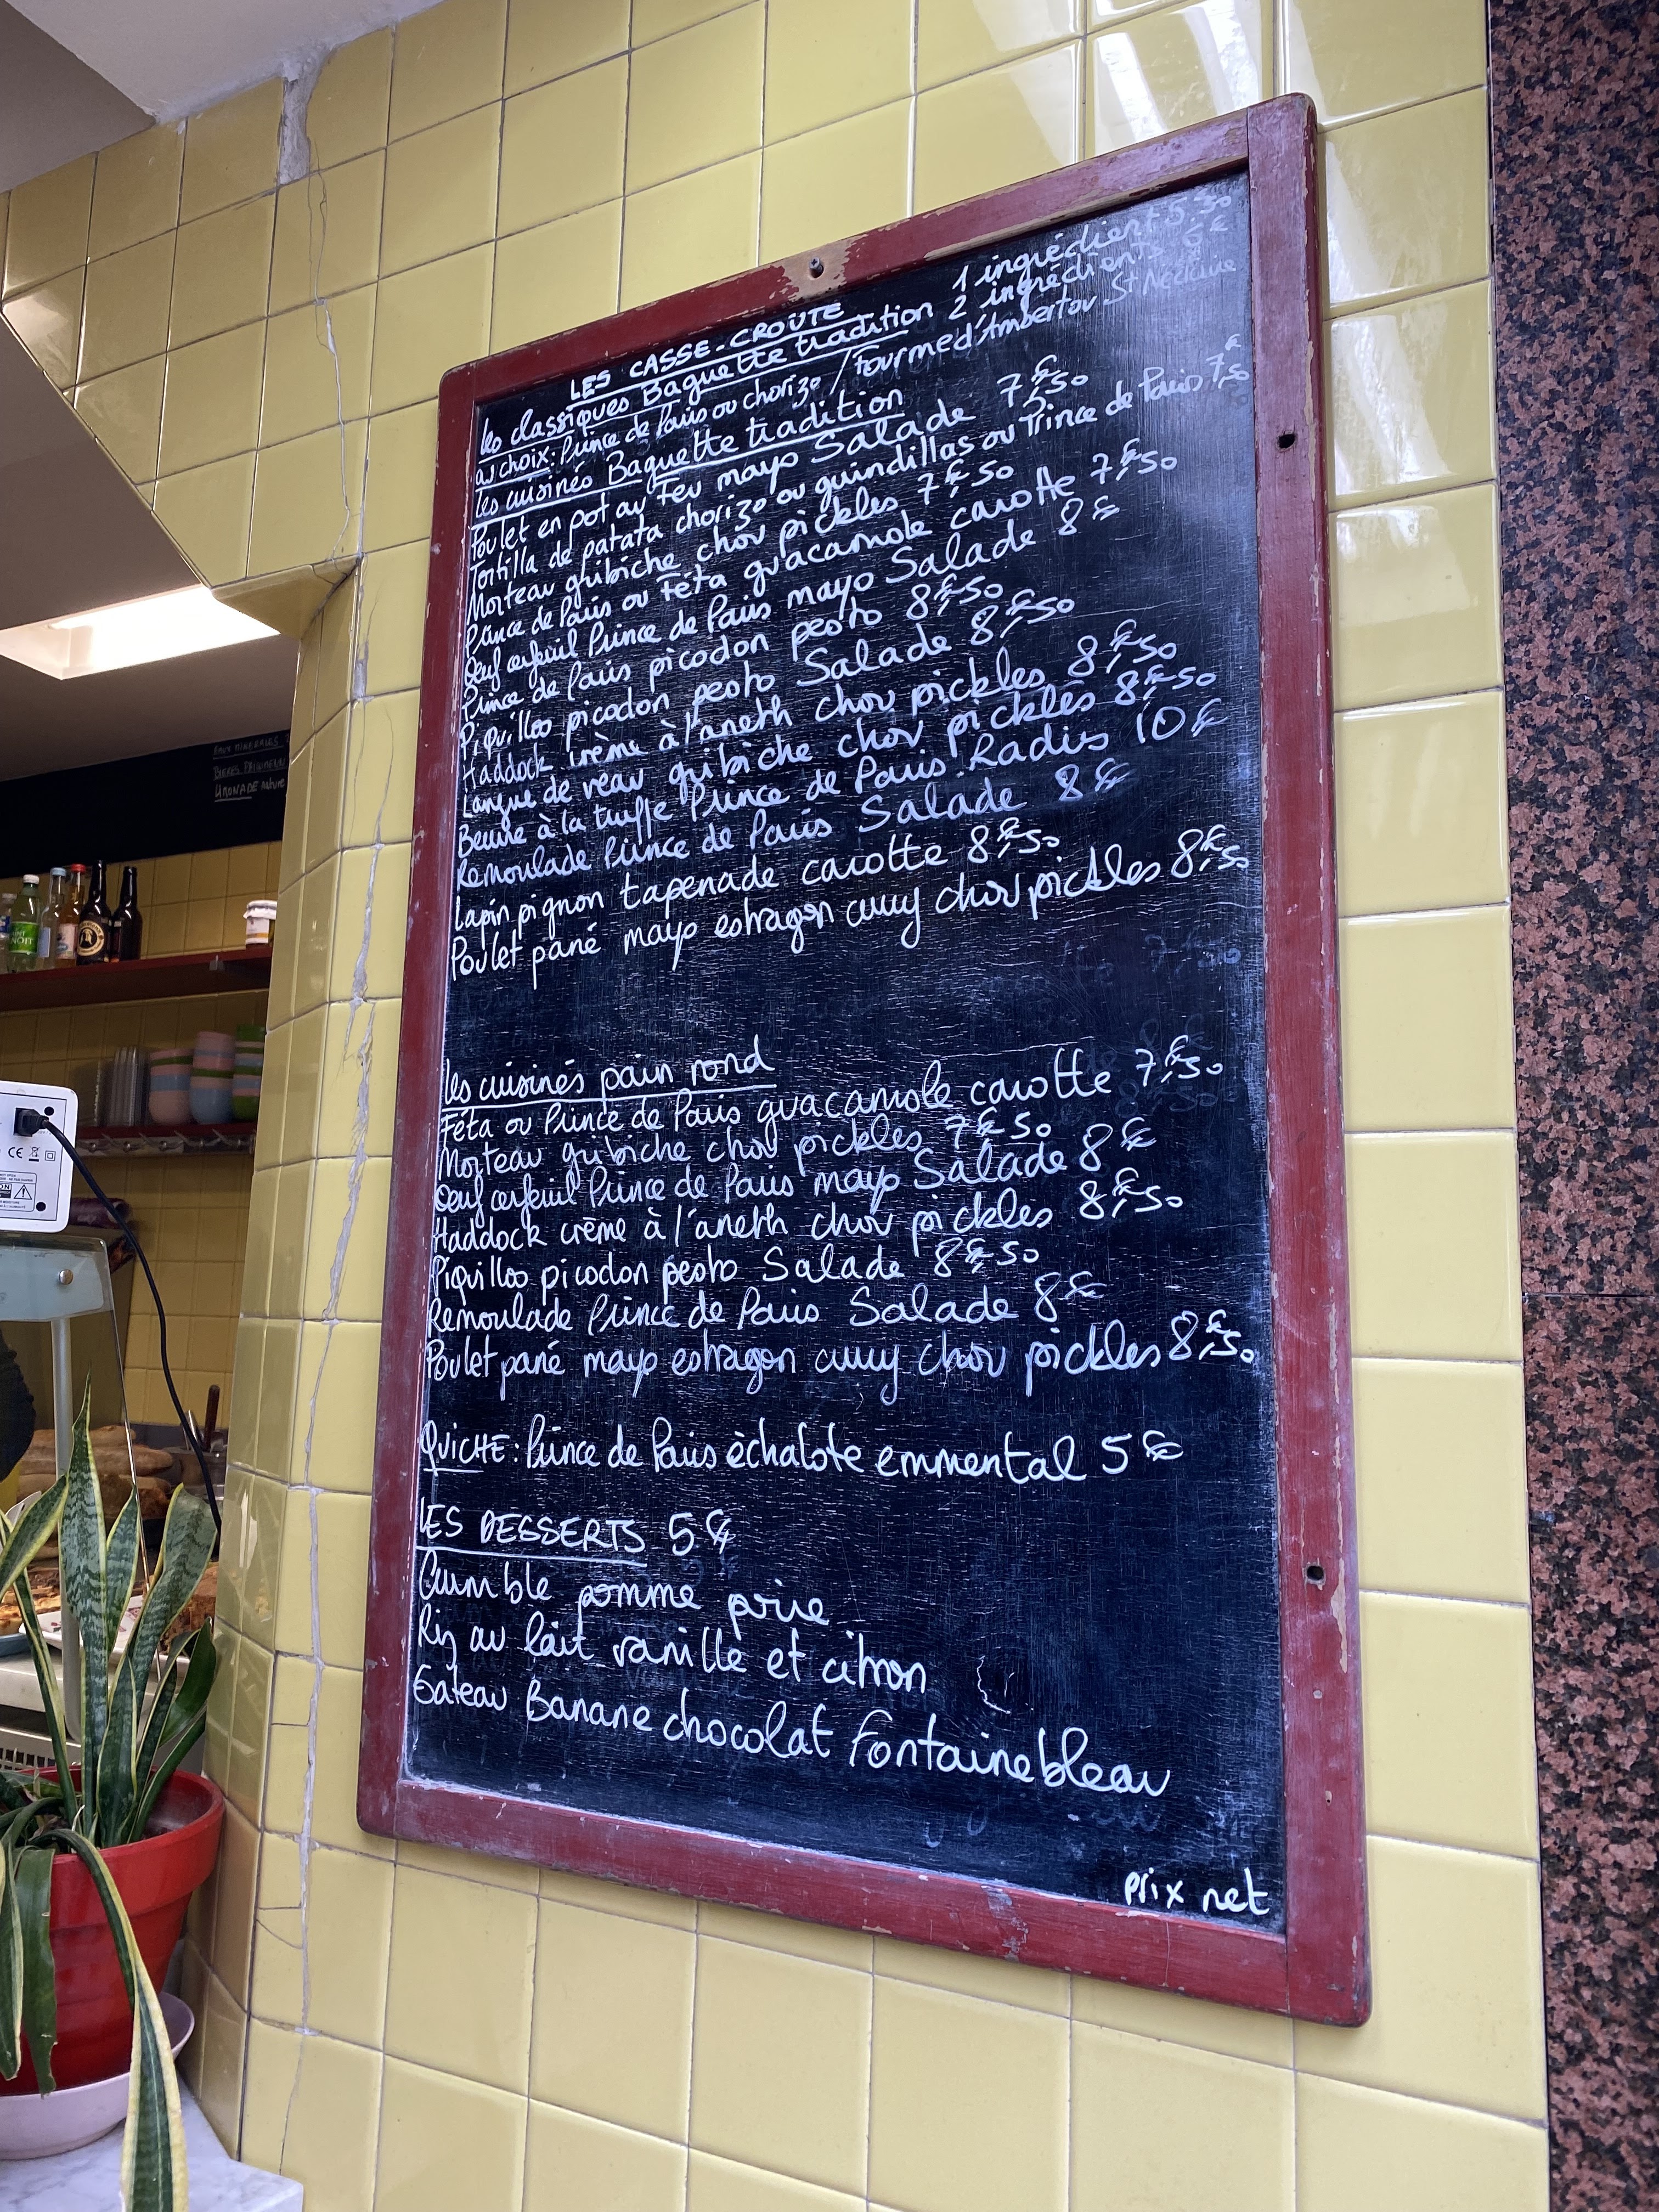 LES CASSE-CROUTE
les classiques Baguette tradition 1 ingrédient 5.30
2 ingrédients 6€
au choix: Prince de Paris ou chorizo / Fourme d'Ambert ou St Nectaire
les cuisinés Baguette tradition
Poulet en pot au feu mayo Salade 7€,50
Tortilla de patata chorizo ou guindillas ou Prince de Paris 7€,50
Morteau gribiche chou pickles 7€,50
Prince de Paris ou Féta guacamole carotte 7€,50
Oeuf cerfeuil Prince de Paris mayo Salade 8€
Prince de Paris picodon pesto 8€,50
Piquillos picodon pesto Salade 8€,50
Haddock crème à l'aneth chou pickles 8€,50
Langue de veau gribiche chou pickles 8€,50
Beurre à la truffe Prince de Paris. Radis 10€
Remoulade Prince de Paris Salade 8€
Lapin pignon tapenade carotte 8€,50
Poulet pané mayo estragon curry chou pickles 8€,50
les cuisinés pain rond
Féta ou Prince de Paris guacamole carotte 7€,50
Morteau gribiche chou pickles 7€50
Oeuf cerfeuil Prince de Paris mayo Salade 8€
Haddock crème à l'aneth chou pickles 8€,50
Piquillos picodon pesto Salade 8€,50
Remoulade Prince de Paris Salade 8€
Poulet pané mayo estragon curry chou pickles 8€,50
QUICHE: Prince de Paris èchalote emmental 5€
LES DESSERTS 5€
Crumble pomme poire
Riz au lait vanille et citron
Gateau Banane chocolat Fontainebleau
prix net
EAUX MINERALES
LIMONADE nature
CE